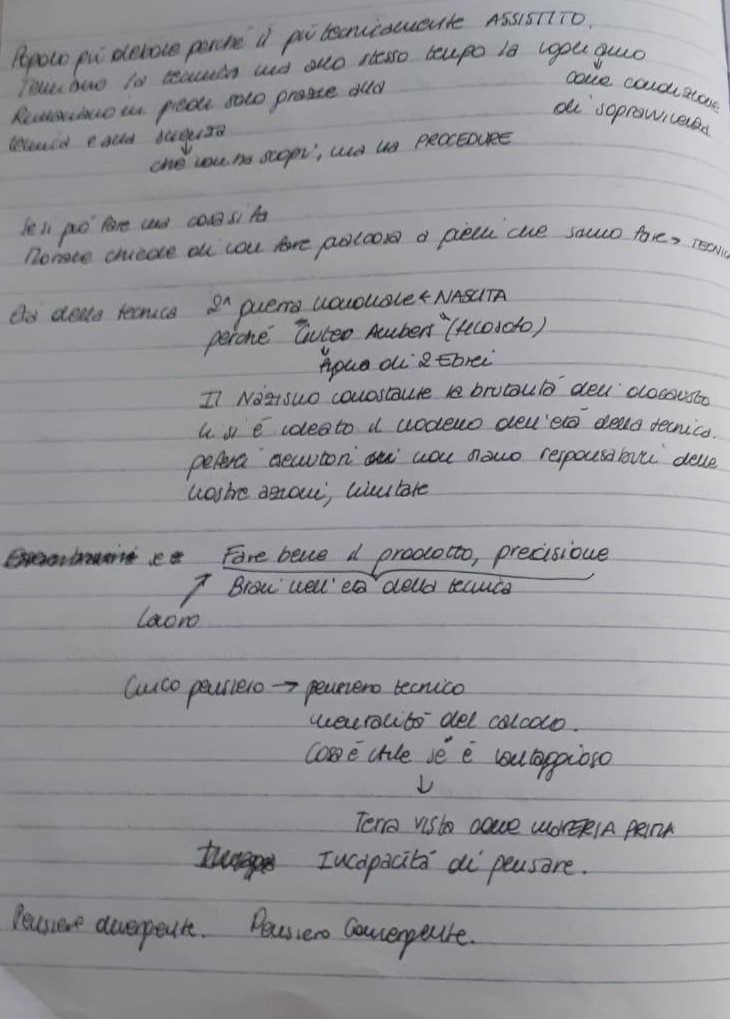 Popolo più debole perché il più tecnicamente ASSISTITO.
Temiamo la tecnica ma allo stesso tempo la vogliamo
come condizione
di sopravvivenza
Rimaniamo in piedi solo grazie alla
tecnica e alla scienza
che non ha scopi, ma ha PROCEDURE
Se si può fare una cosa si fa
Morale chiede di non fare qualcosa a quelli che sanno fare → TECNICA
Età della tecnica 2ª guerra mondiale ← NASCITA
perché "Gunter Anders" (filosofo)
figlio di 2 Ebrei
Il Nazismo nonostante la brutalità dell'olocausto
lì si è ideato il modello dell'età della tecnica.
esecutori non siamo responsabili delle
nostre azioni, limitate
Fare bene il prodotto, precisione
Bravi nell'età della tecnica
Lavoro
Unico pensiero → pensiero tecnico
mentalità del calcolo.
Cosa è utile se è vantaggioso
↓
Terra vista come MATERIA PRIMA
Incapacità di pensare.
Pensiero divergente. Pensiero Convergente.